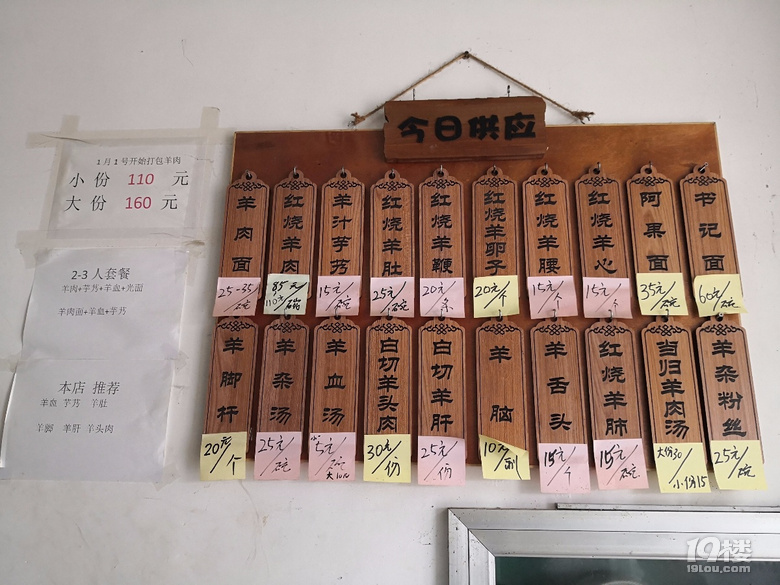 今日供应
1月1号开始打包羊肉
小 份 110 元
大 份 160 元
2-3 人套餐
羊肉+芋艿+羊血+光面
羊肉面+羊血+芋艿
本店 推荐
羊血 芋艿 羊肚
羊脚 羊肝 羊头肉
羊肉面
25-35/碗
红烧羊肉
85元
110元/碗
羊汁芋艿
15元/碗
红烧羊肚
25元/碗
红烧羊鞭
20元/条
红烧羊卵子
20元/个
红烧羊腰
15元/个
红烧羊心
15元/个
阿果面
35元/碗
书记面
60元/碗
羊脚杆
20元/个
羊杂汤
25元/碗
羊血汤
小5元/碗
大10元
白切羊头肉
30元/份
白切羊肝
25元/份
羊脑
10元/副
羊舌头
15元/个
红烧羊肺
15元/碗
当归羊肉汤
大份30/
小份15
羊杂粉丝
25元/碗
19楼
19lou.com